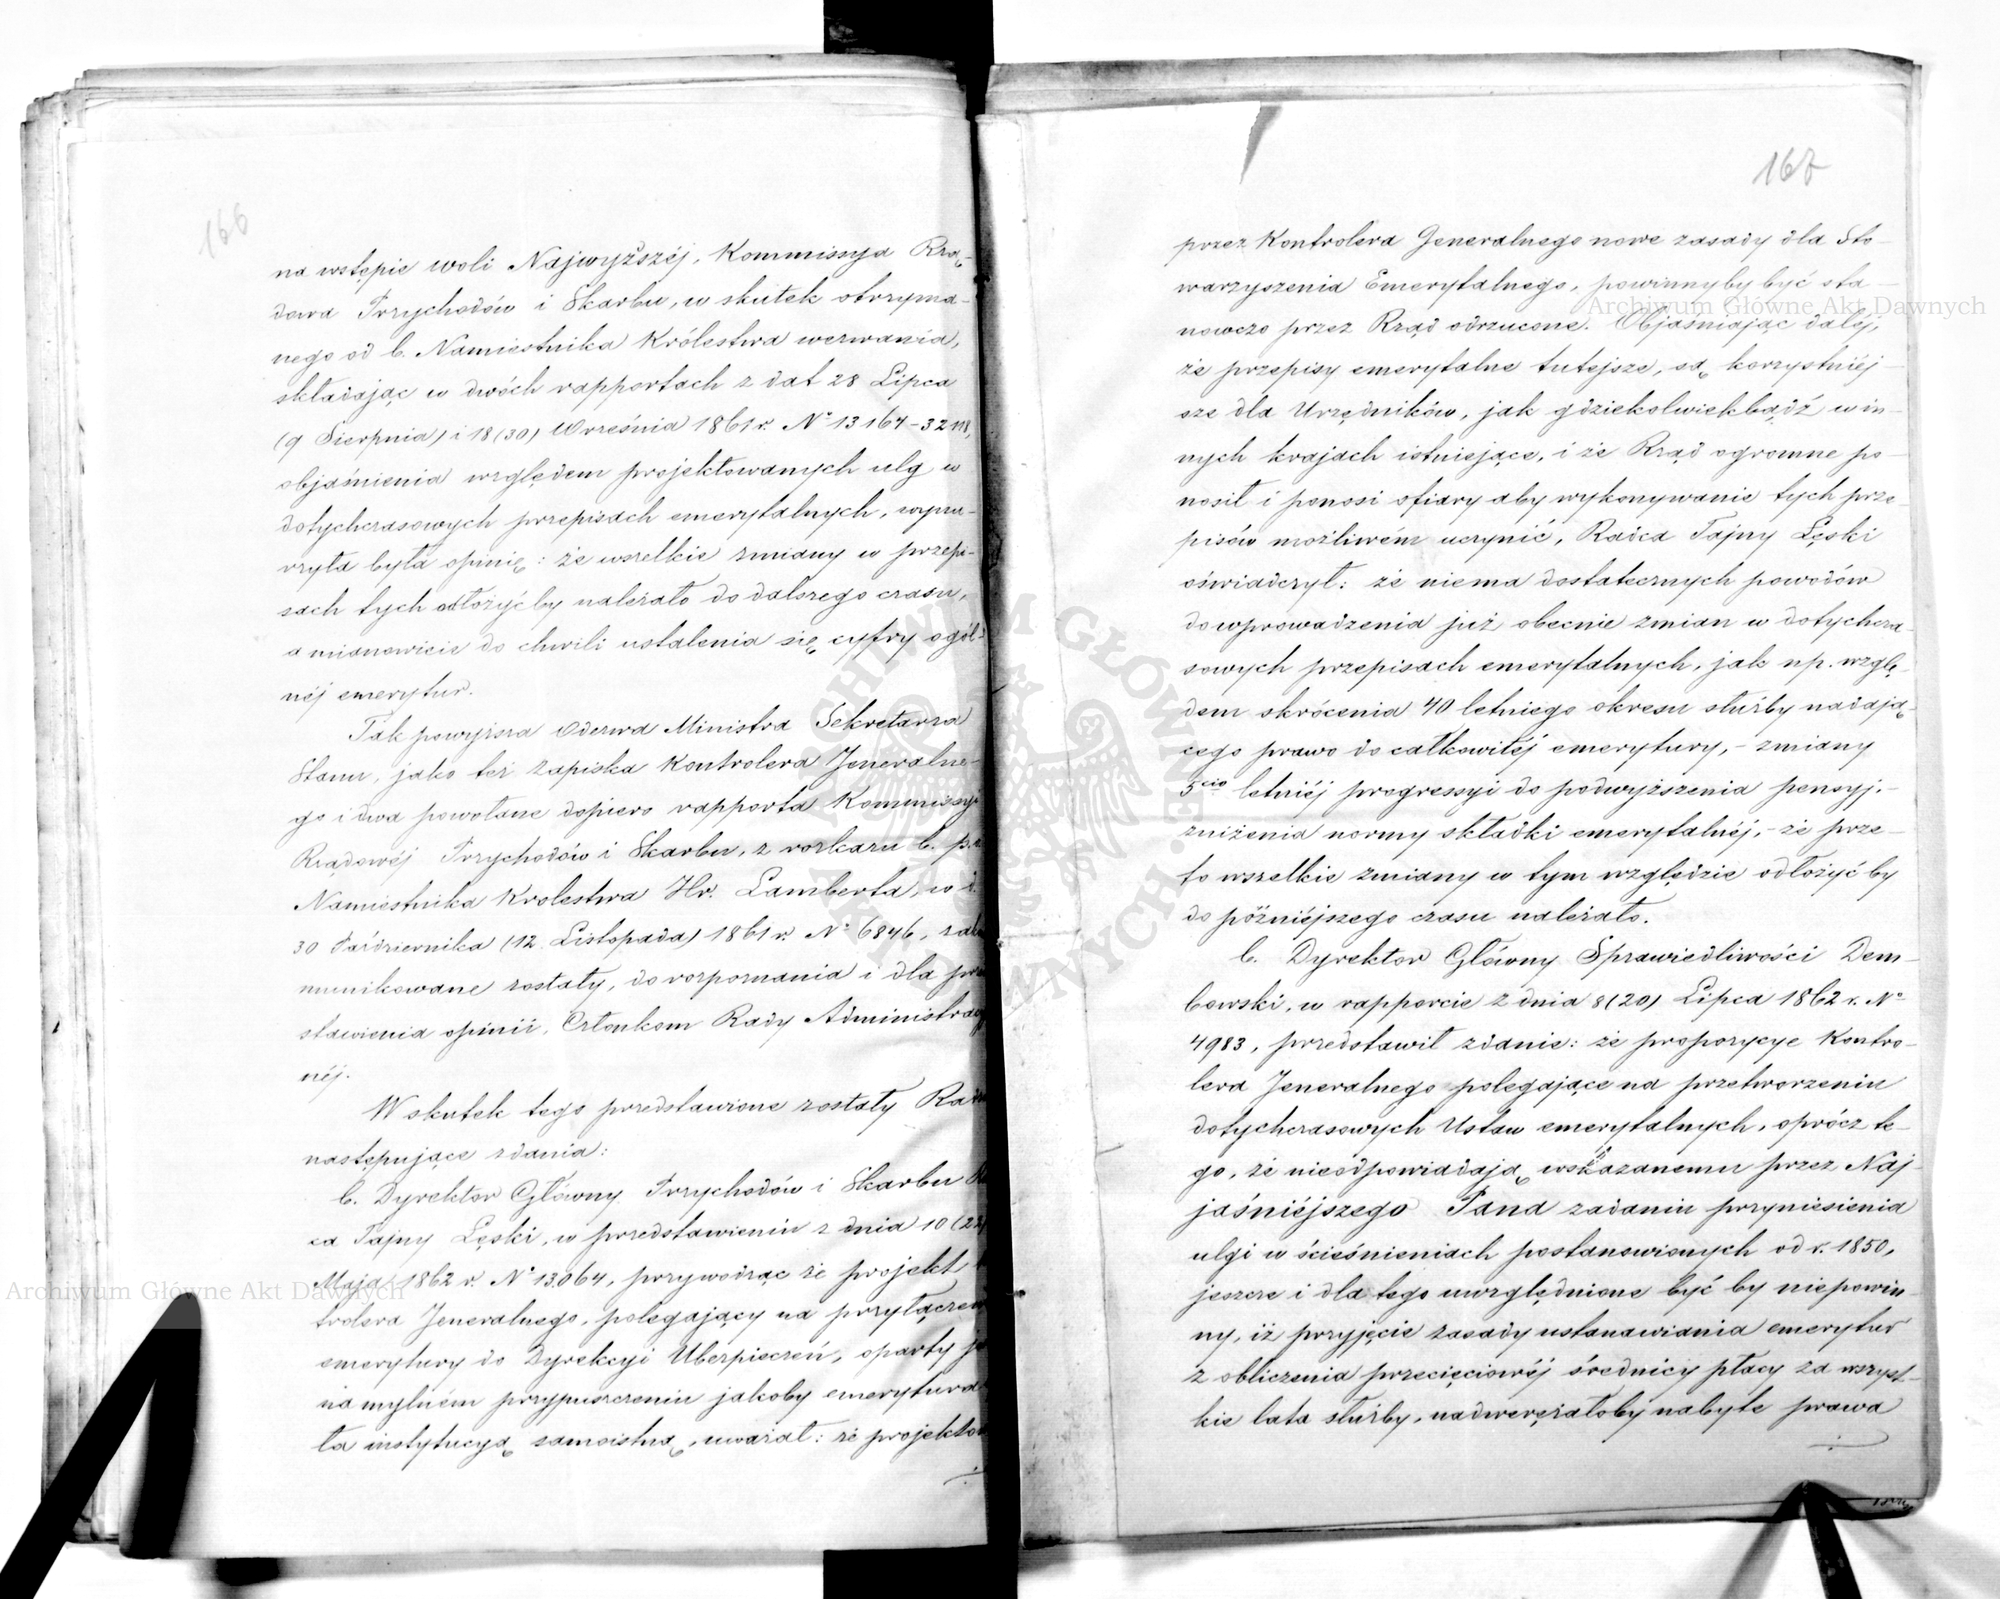 166
na wstępie woli Najwyższéj, Kommissya Rzą-
dowa Przychodów i Skarbu, w skutek otrzyma-
nego od b. Namiestnika Królestwa wezwania,
składając w dwóch rapportach z dat 28 Lipca
(9 Sierpnia) i 18 (30) Września 1861 r. Nº 13164-
objaśnienia względem projektowanych ulg w
dotychczasowych przepisach emerytalnych, wynu-
rzyła była opinię: że wszelkie zmiany w przepi-
sach tych odłożyćby należało do dalszego czasu,
a mianowicie do chwili ustalenia się cyfry ogól-
néj emerytur.
Tak powyższa Odezwa Ministra Sekretarza
Stanu, jako też zapiska Kontrolera Jeneralne-
go i dwa powołane dopiero rapporta Kommissyi
Rządowéj Przychodów i Skarbu, z rozkazu b. p.o.
Namiestnika Krolestwa Hr. Lamberta, w d.
30 Października (12 Listopada) 1861 r. Nº 6846, zako
munikowane zostały, do rozpoznania i dla prze
stawienia opinii, Członkom Rady Administracyj
néj.
W skutek tego przedstawione zostały Radzie
następujące zdania:
b. Dyrektor Główny Przychodów i Skarbu Rad
ca Tajny Łęski, w przedstawieniu z dnia 10 (22)
Maja 1862 r. Nº 13.064, przywodząc że projekt
trolera Jeneralnego, polegający na przyłączeniu
emerytury do Dyrekcyi Ubezpieczeń, oparty je
na mylném przypuszczeniu jakoby emerytura
ła instytucyą samoistną, uważał: że projektow
167
przez Kontrolera Generalnego nowe zasady dla Sto-
warzyszenia Emerytalnego, powinnyby być sta-
nowczo przez Rząd odrzucone. Objaśniając daléj,
że przepisy emerytalne tutejsze, są korzystniéj-
sze dla Urzędników, jak gdziekolwiekbądź w in-
nych krajach istniejące, i że Rząd ogromne po-
nosił i ponosi ofiary aby wykonywanie tych prze-
pisów możliwém uczynić, Radca Tajny Łęski
oświadczył: że niema dostatecznych powodów
do wprowadzenia już obecnie zmian w dotychcza-
sowych przepisach emerytalnych, jak np. wzglę-
dem skrócenia 40 letniego okresu służby nadają-
cego prawo do całkowitéj emerytury, - zmiany
5cio letniéj progressyi do podwyższenia pensyj, -
zniżenia normy składki emerytalnéj, - że prze-
to wszelkie zmiany w tym względzie odłożyć by
do późniéjszego czasu należało.
b. Dyrektor Główny Sprawiedliwości Dem-
bowski, w rapporcie z dnia 8 (20) Lipca 1862 r. Nº
4983, przedstawił zdanie: że propozycye Kontro-
lera Jeneralnego polegające na przetworzeniu
dotychczasowych Ustaw emerytalnych, oprócz te-
go, że nieodpowiadają wskazanemu przez Naj-
jaśniéjszego Pana zadaniu przyniesienia
ulgi w ścieśnieniach postanowionych od r. 1850,
jeszcze i dla tego uwzględnione być by niepowin-
ny, iż przyjęcie zasady ustanawiania emerytur
z obliczenia przecięciowéj średnicy płacy za wszyst-
kie lata służby, nadweręźałoby nabyte prawa
Archiwum Główne Akt Dawnych
Archiwum Główne Akt Dawnych
ARCHIWUM GŁÓWNE AKT DAWNYCH